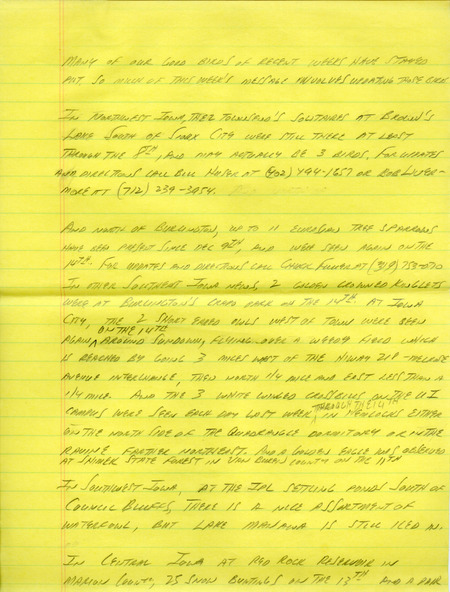 Many of our good birds of recent weeks have stayed
put so much of this week's message involves updating those birds.
In Northwest Iowa, the 2 Townsend's Solitaires at Brown's
Lake South of Sioux City were still there at least
through the 8th, and may actually be 3 birds. For updates
and directions call Bill Huser at (402) 494-1657 or Bob Liver-
more at (712) 239-3054.
And north of Burlington, up to 11 Eurasian Tree Sparrows
have been present since Dec 9th, and were seen again on the
14th. For updates and directions call Chuck Fuller at (319) 753-
In other Southeast Iowa news, 2 Golden Crowned Kinglets
were at Burlington's Crapo Park on the 14th. At Iowa
City, the 2 Short Eared Owls west of town were seen
on the 14th
again around sundown, flying over a weedy field which
is reached by going 3 miles west of the Hiway 218 Melrose
Avenue interchange, then north 1/4 mile and east less than a
1/4 mile. And the 3 White Winged Crossbills on the U I
campus were seen each day last week through the 14th in hemlocks either
on the north side of the Quadrangle dormitory or in the
ravine farther northeast. And a Golden Eagle was observed
at Shimek State Forest in Van Buren County on the 11th
In Southwest Iowa, at the IPL settling ponds south of
Council Bluffs, there is a nice assortment of
waterfowl, but Lake Manawa is still iced in.
In Central Iowa at Red Rock Reservoir in
Marion County, 25 Snow Buntings on the 13th and a pair